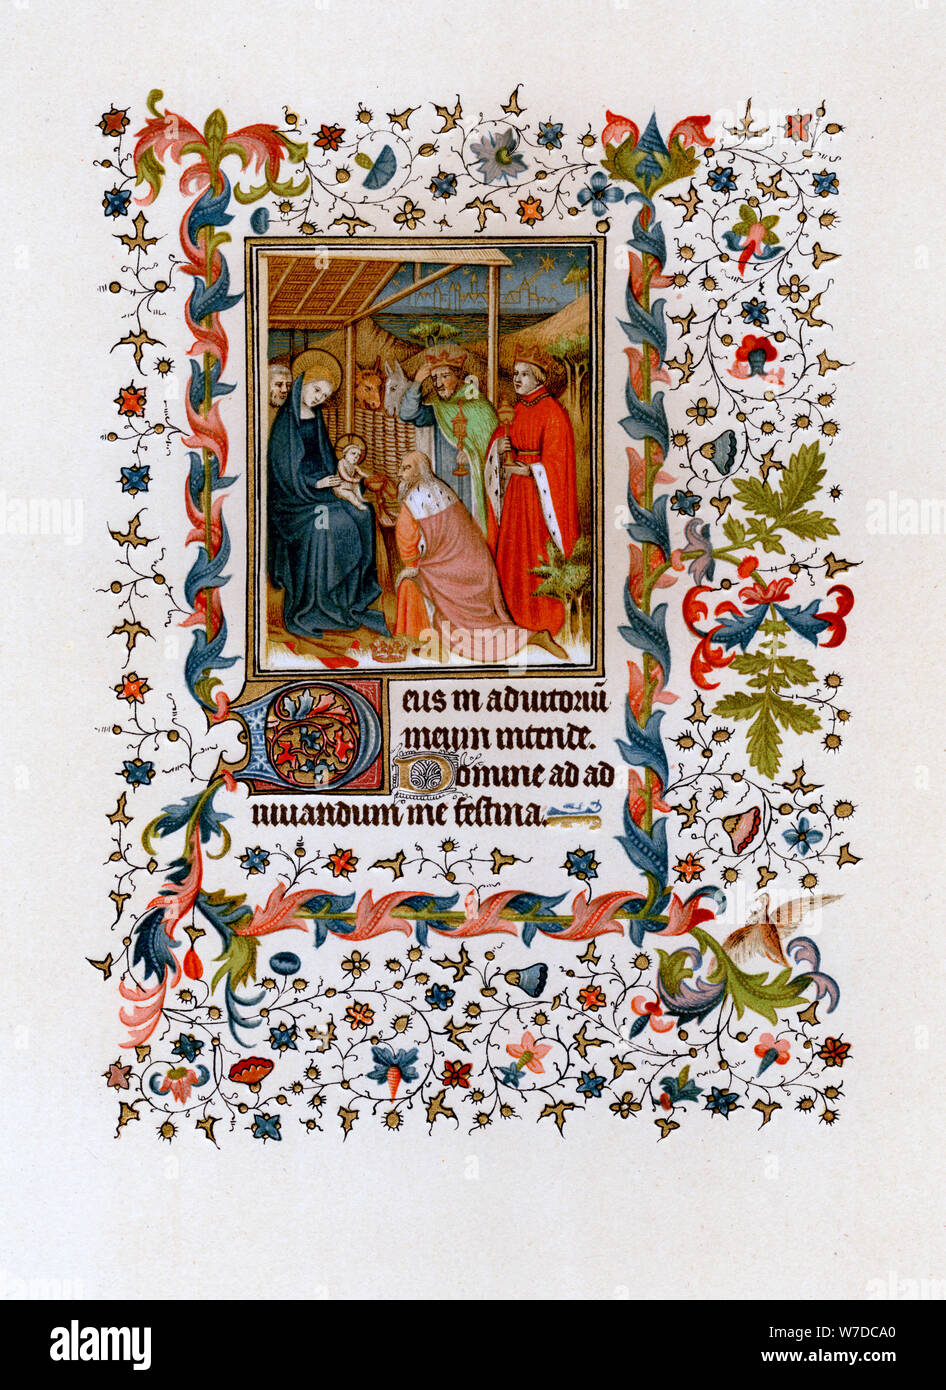 Deus in adiutoriū
meum intende.
Domine ad ad
iuuandum me festina.
alamy
Image ID: W7DCA0
www.alamy.com